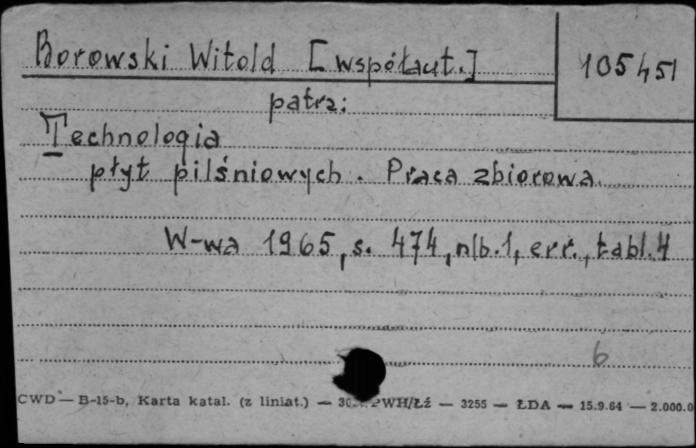 Borowski Witold [współaut.]
105451
patrz:
Technologia
płyt pilśniowych. Praca zbiorowa.
W-wa 1965, s. 474, nlb. 1, err., tabl. 4
6
CWD — B-15-b, Karta katal. (z liniat.) — PWH/Łź — 3255 — ŁDA — 15.9.64 — 2.000.0